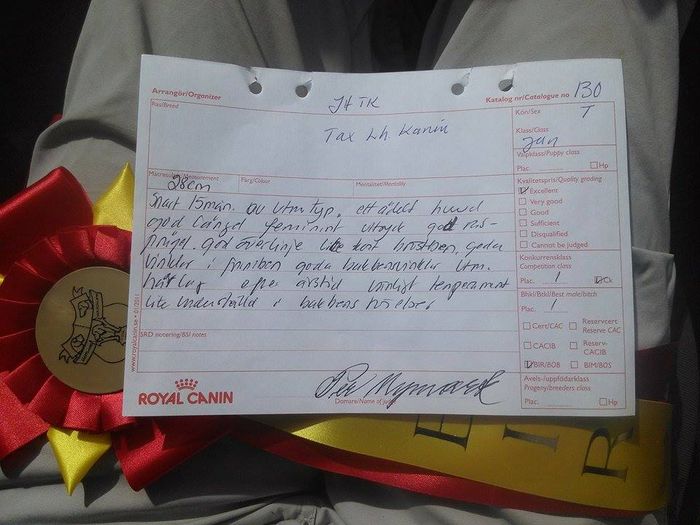 Arrangör/Organizer
JHTK
Katalog nr/Catalogue no 130
Ras/Breed
Tax Lh. Kanin
Kön/Sex T
Klass/Class
Jun
Valpklass/Puppy class
Plac. Hp
Mätresultat/Measurement 28cm
Färg/Colour
Mentalitet/Mentality
Snart 15mån. av utm typ. ett ädelt huvud
god längd feminint uttryck god ras-
prägel. god överlinje lite kort bröstben, goda
vinklar i fronten goda bakbensvinklar Utm.
hårlag efter årstid vänligt temperament
lite underställd i bakbens rörelser
Kvalitetspris/Quality grading
Excellent
Very good
Good
Sufficient
Disqualified
Cannot be judged
Konkurrensklass
Competition class
Plac. 1 Ck
Bhkl/Btkl/Best male/bitch
Plac. 1
Cert/CAC
Reservcert
Reserve CAC
CACIB
Reserv-
CACIB
BIR/BOB
BIM/BOS
Avels-/uppfödarklass
Progeny/breeders class
Plac. Hp
SRD notering/BSI notes
www.royalcanin.se • 01/2011
ROYAL CANIN
Domare/Name of judge
B I R